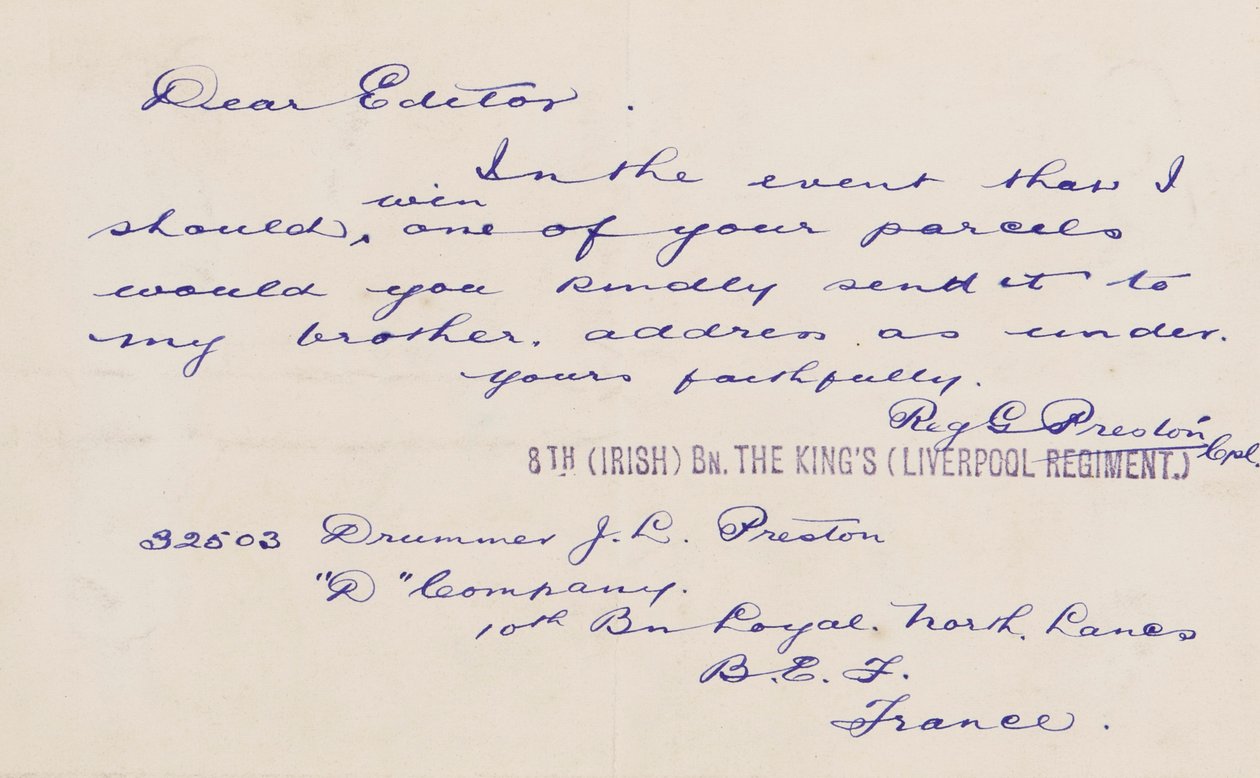 Dear Editor.
In the event that I
should, win one of your parcels
would you kindly send it to
my brother. address as under.
Yours faithfully.
Reg G Preston Cpl.
8TH (IRISH) BN. THE KING'S (LIVERPOOL REGIMENT.)
32503 Drummer J. L. Preston
"D" Company.
10th Bn Loyal. North. Lancs
B.E.F.
France.